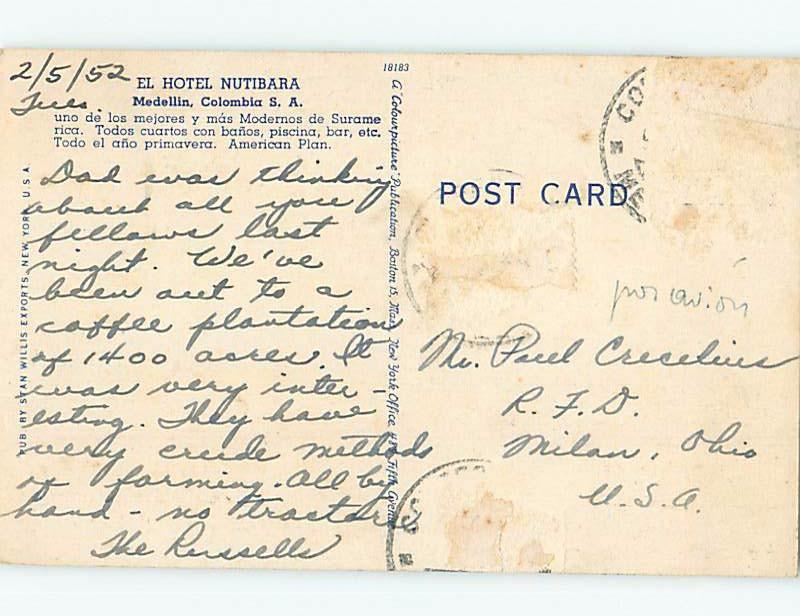 2/5/52
Tues.
EL HOTEL NUTIBARA
Medellin, Colombia S. A.
uno de los mejores y más Modernos de Surame
rica. Todos cuartos con baños, piscina, bar, etc.
Todo el año primavera. American Plan.
Dad was thinking
about all you
fellows last
night. We've
been out to a
coffee plantation
of 1400 acres. It
was very inter-
esting. They have
very crude methods
of farming. All by
hand - no tractors
The Russells
PUB. BY STAN WILLIS EXPORTS, NEW YORK, U.S.A.
18183
A "Colourpicture" Publication, Boston 15, Mass. New York Office, Fifth Avenue
POST CARD
por avión
Mr. Paul Crecelius
R. F. D.
Milan, Ohio
U.S.A.